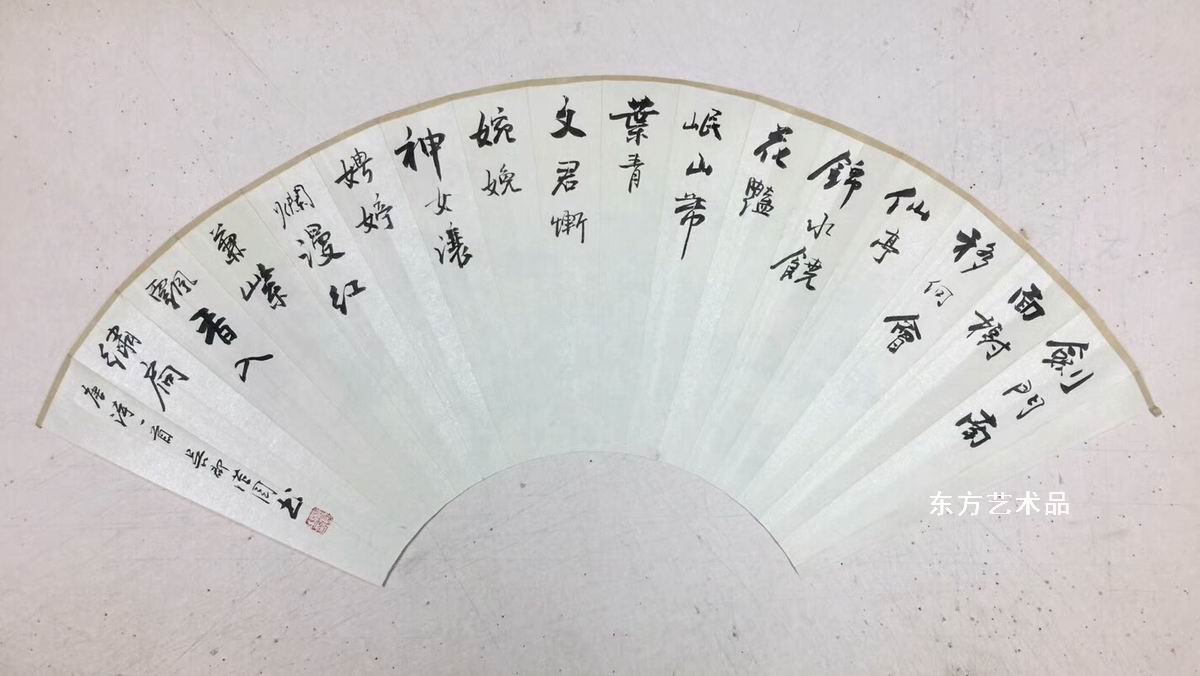 劍門南
面樹
移向會
仙亭
錦水饒
花豔
岷山帶
葉青
文君慚
婉娩
神女讓
娉婷
爛漫紅
兼紫
飄香入
繡扃
唐詩一首 吳郡 書
东方艺术品